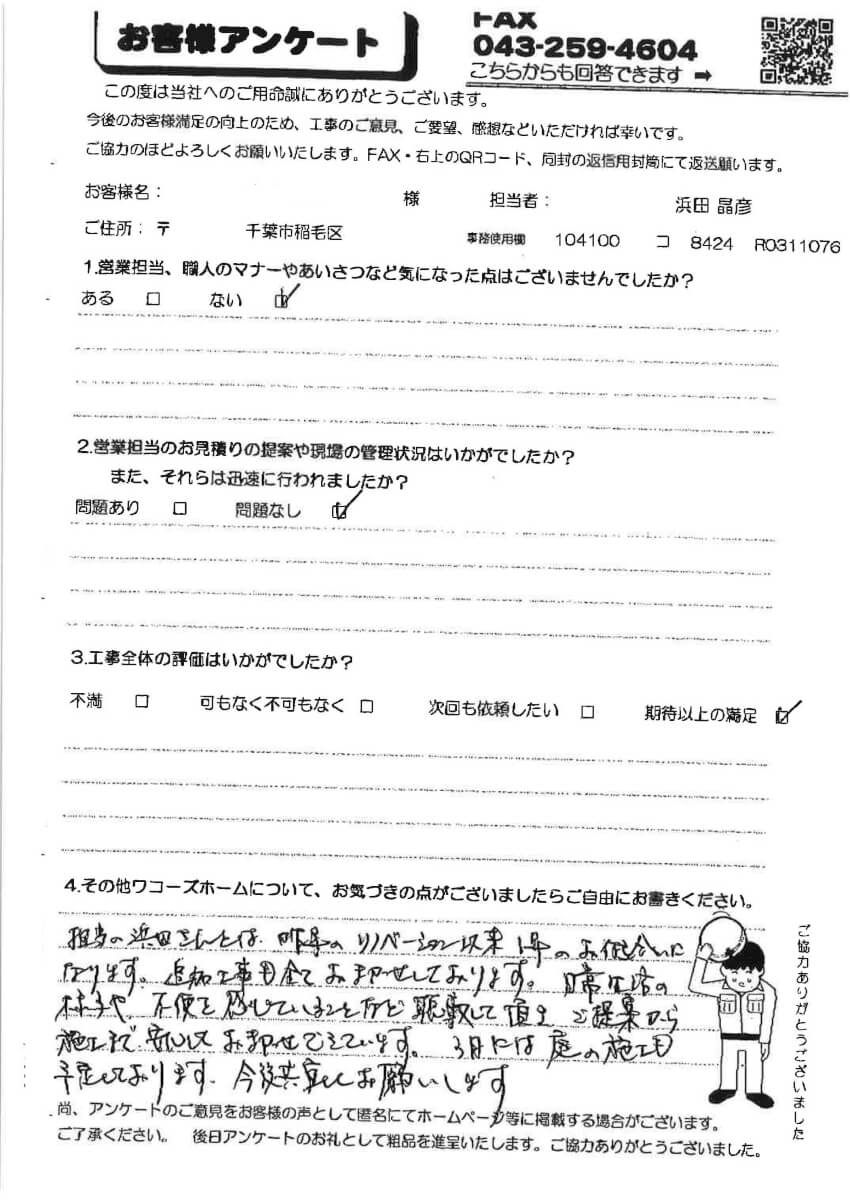 お客様アンケート
FAX
043-259-4604
こちらからも回答できます ➡
この度は当社へのご用命誠にありがとうございます。
今後のお客様満足の向上のため、工事のご意見、ご要望、感想などいただければ幸いです。
ご協力のほどよろしくお願いいたします。FAX・右上のQRコード、同封の返信用封筒にて返送願います。
お客様名： 様 担当者： 浜田 晶彦
ご住所：〒 千葉市稲毛区 事務使用欄 104100 コ 8424 R0311076
1.営業担当、職人のマナーやあいさつなど気になった点はございませんでしたか？
ある □ ない ☑
2.営業担当のお見積りの提案や現場の管理状況はいかがでしたか？
また、それらは迅速に行われましたか？
問題あり □ 問題なし ☑
3.工事全体の評価はいかがでしたか？
不満 □ 可もなく不可もなく □ 次回も依頼したい □ 期待以上の満足 ☑
4.その他ワコーズホームについて、お気づきの点がございましたらご自由にお書きください。
担当の浜田さんとは、昨年のリノベーション以来1年のお付合いに
なります。追加工事も全ておまかせしております。日常生活の
様子や、不便を感じていることなど聴取して頂き ご提案から
施工まで、安心してお任せできています。3月には庭の施工も
予定しております。今後共宜しくお願いします
ご協力ありがとうございました
尚、アンケートのご意見をお客様の声として匿名にてホームページ等に掲載する場合がございます。
ご了承ください。 後日アンケートのお礼として粗品を進呈いたします。ご協力ありがとうございました。